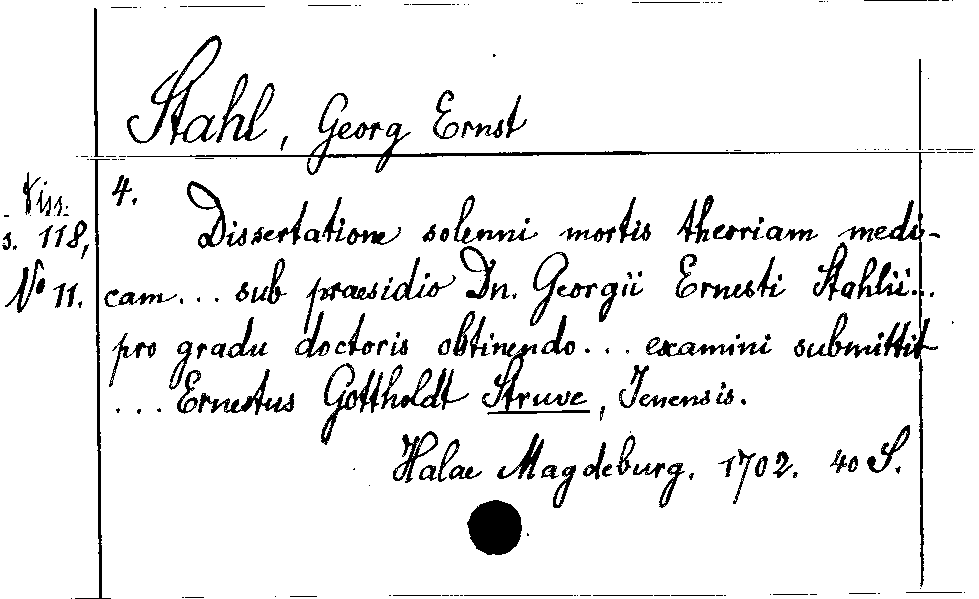 Stahl, Georg Ernst
Diss.
s. 118,
No 11.
4. Dissertatione solenni mortis theoriam medi-
cam... sub praesidio Dn. Georgii Ernesti Stahlii...
pro gradu doctoris obtinendo... examini submittit
... Ernestus Gottholdt Struve, Jenensis.
Halae Magdeburg. 1702. 40 S.